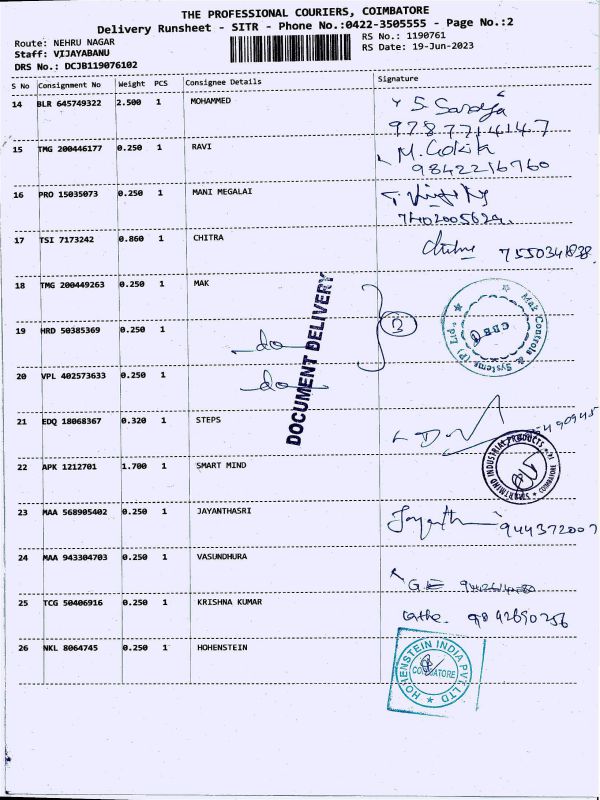 THE PROFESSIONAL COURIERS, COIMBATORE
Delivery Runsheet - SITR - Phone No.:0422-3505555 - Page No.:2
Route: NEHRU NAGAR RS No.: 1190761
Staff: VIJAYABANU RS Date: 19-Jun-2023
DRS No.: DCJB119076102
S No Consignment No Weight PCS Consignee Details Signature
14 BLR 645749322 2.500 1 MOHAMMED S. Saroja
9787714147
15 TMG 200446177 0.250 1 RAVI M. Gokila
9842216760
16 PRO 15035073 0.250 1 MANI MEGALAI
7402005629
17 TSI 7173242 0.860 1 CHITRA Chitra 7550341838
18 TMG 200449263 0.250 1 MAK
19 HRD 50385369 0.250 1 -do-
20 VPL 402573633 0.250 1 -do-
DOCUMENT DELIVERY
3
Mak Controls & Systems (P) Ltd., CBE
21 EDQ 18068367 0.320 1 STEPS
22 APK 1212701 1.700 1 SMART MIND
SMARTMIND INDUSTRIAL PRODUCTS COIMBATORE
23 MAA 568905402 0.250 1 JAYANTHASRI Jayanthi 944372007
24 MAA 943304703 0.250 1 VASUNDHURA
25 TCG 50406916 0.250 1 KRISHNA KUMAR 9842690256
26 NKL 8064745 0.250 1 HOHENSTEIN
HOHENSTEIN INDIA PVT LTD COIMBATORE